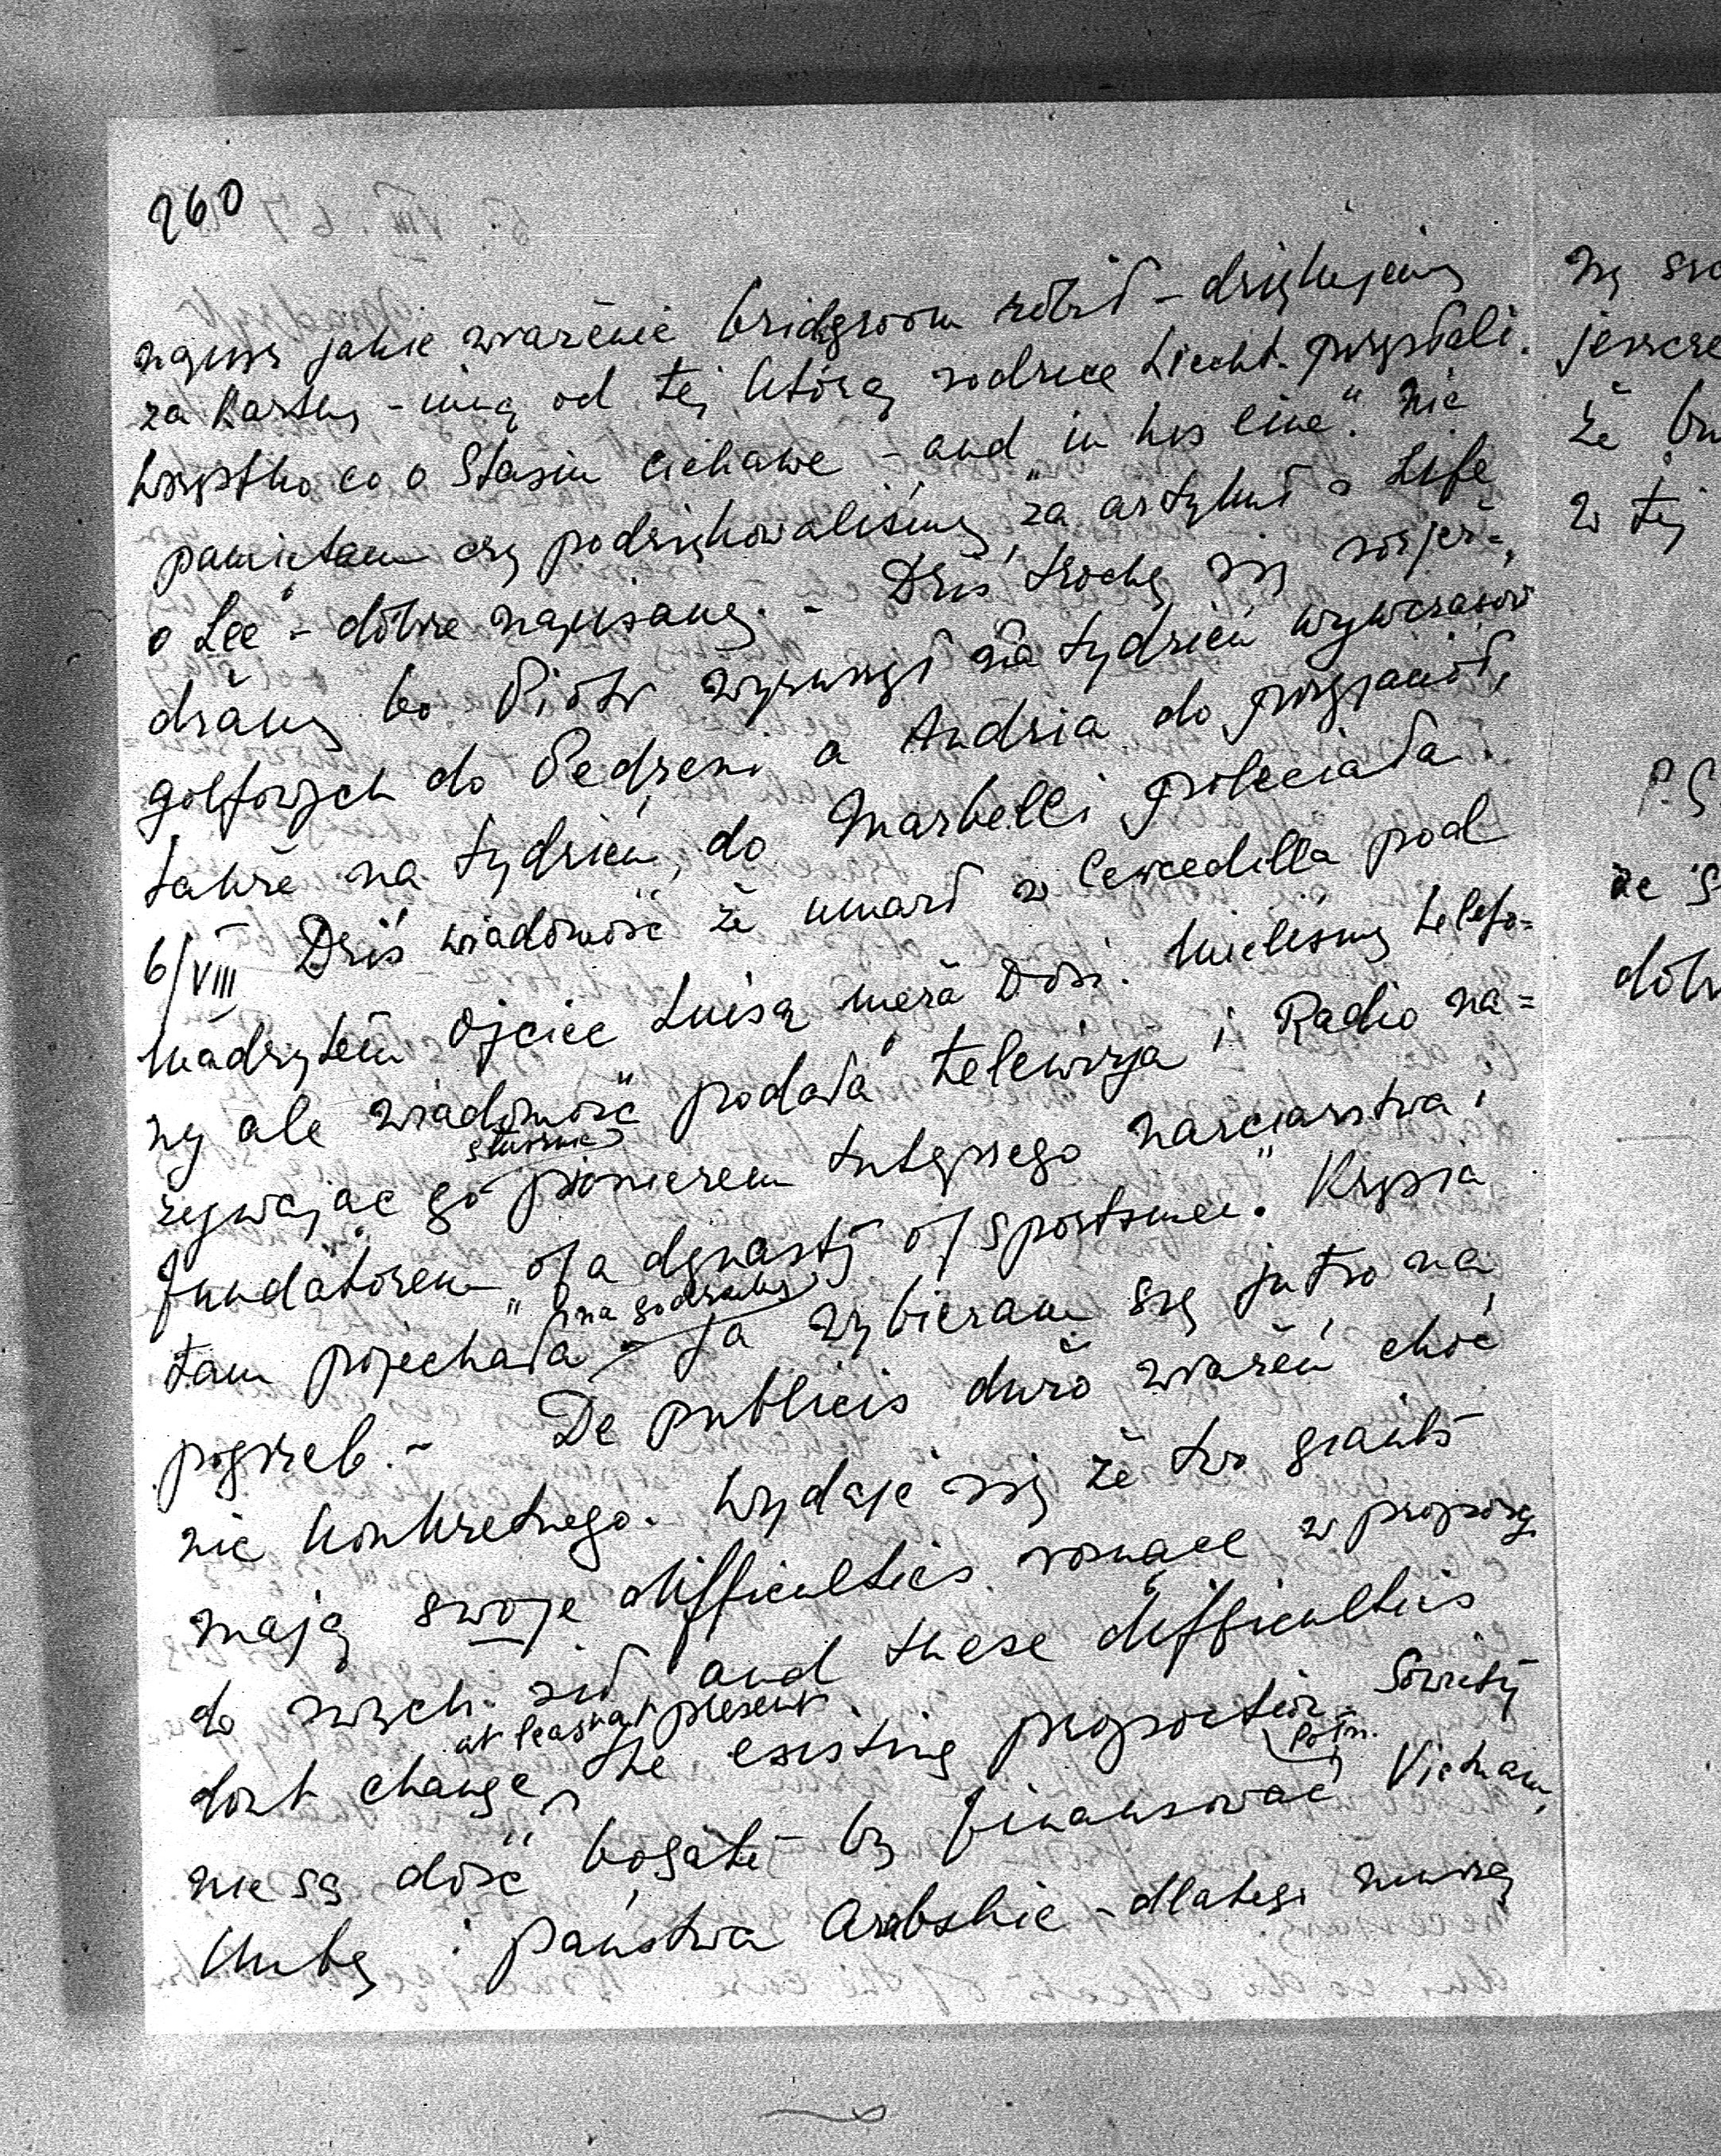 260
napisz jakie wrażenie bridgroom robił - dziękujemy
za kartkę - inną od tej którą rodzice Liecht. przysłali.
Wszystko co o Stasiu ciekawe - and "in his line". Nie
pamiętam czy podziękowaliśmy za artykuł z Life
o Lee - dobrze napisany. - Dziś trochę się rozjeż-
dżamy bo Piotr wyruszył na tydzień wywczasów
golfowych do Pedreni a Andzia do przyjaciół,
także na tydzień, do Marbelli poleciała
6/VIII Dziś wiadomość że umarł w Cercedilla pod
Madrytem Ojciec Luisa męża Dosi. Mieliśmy telefo=
ny ale wiadomość podała telewizja i Radio na=
zywając go słusznie pionierem tutejszego narciarstwa i
fundatorem "of a dynasty of sportsmen". Krysia
tam pojechała na godzinkę - Ja wybieram się jutro na
pogrzeb. - De publicis dużo wrażeń choć
nic konkretnego. Wydaje się że two giants
mają swoje difficulties rosnące w proporcji
do swych sił and these difficulties
dont change at least at present the existing proportion. Sowiety
nie są dość bogate by finansować Vietnam,
Kubę i państwa Arabskie - dlatego muszą
ze
że
w tej
P.S
że S